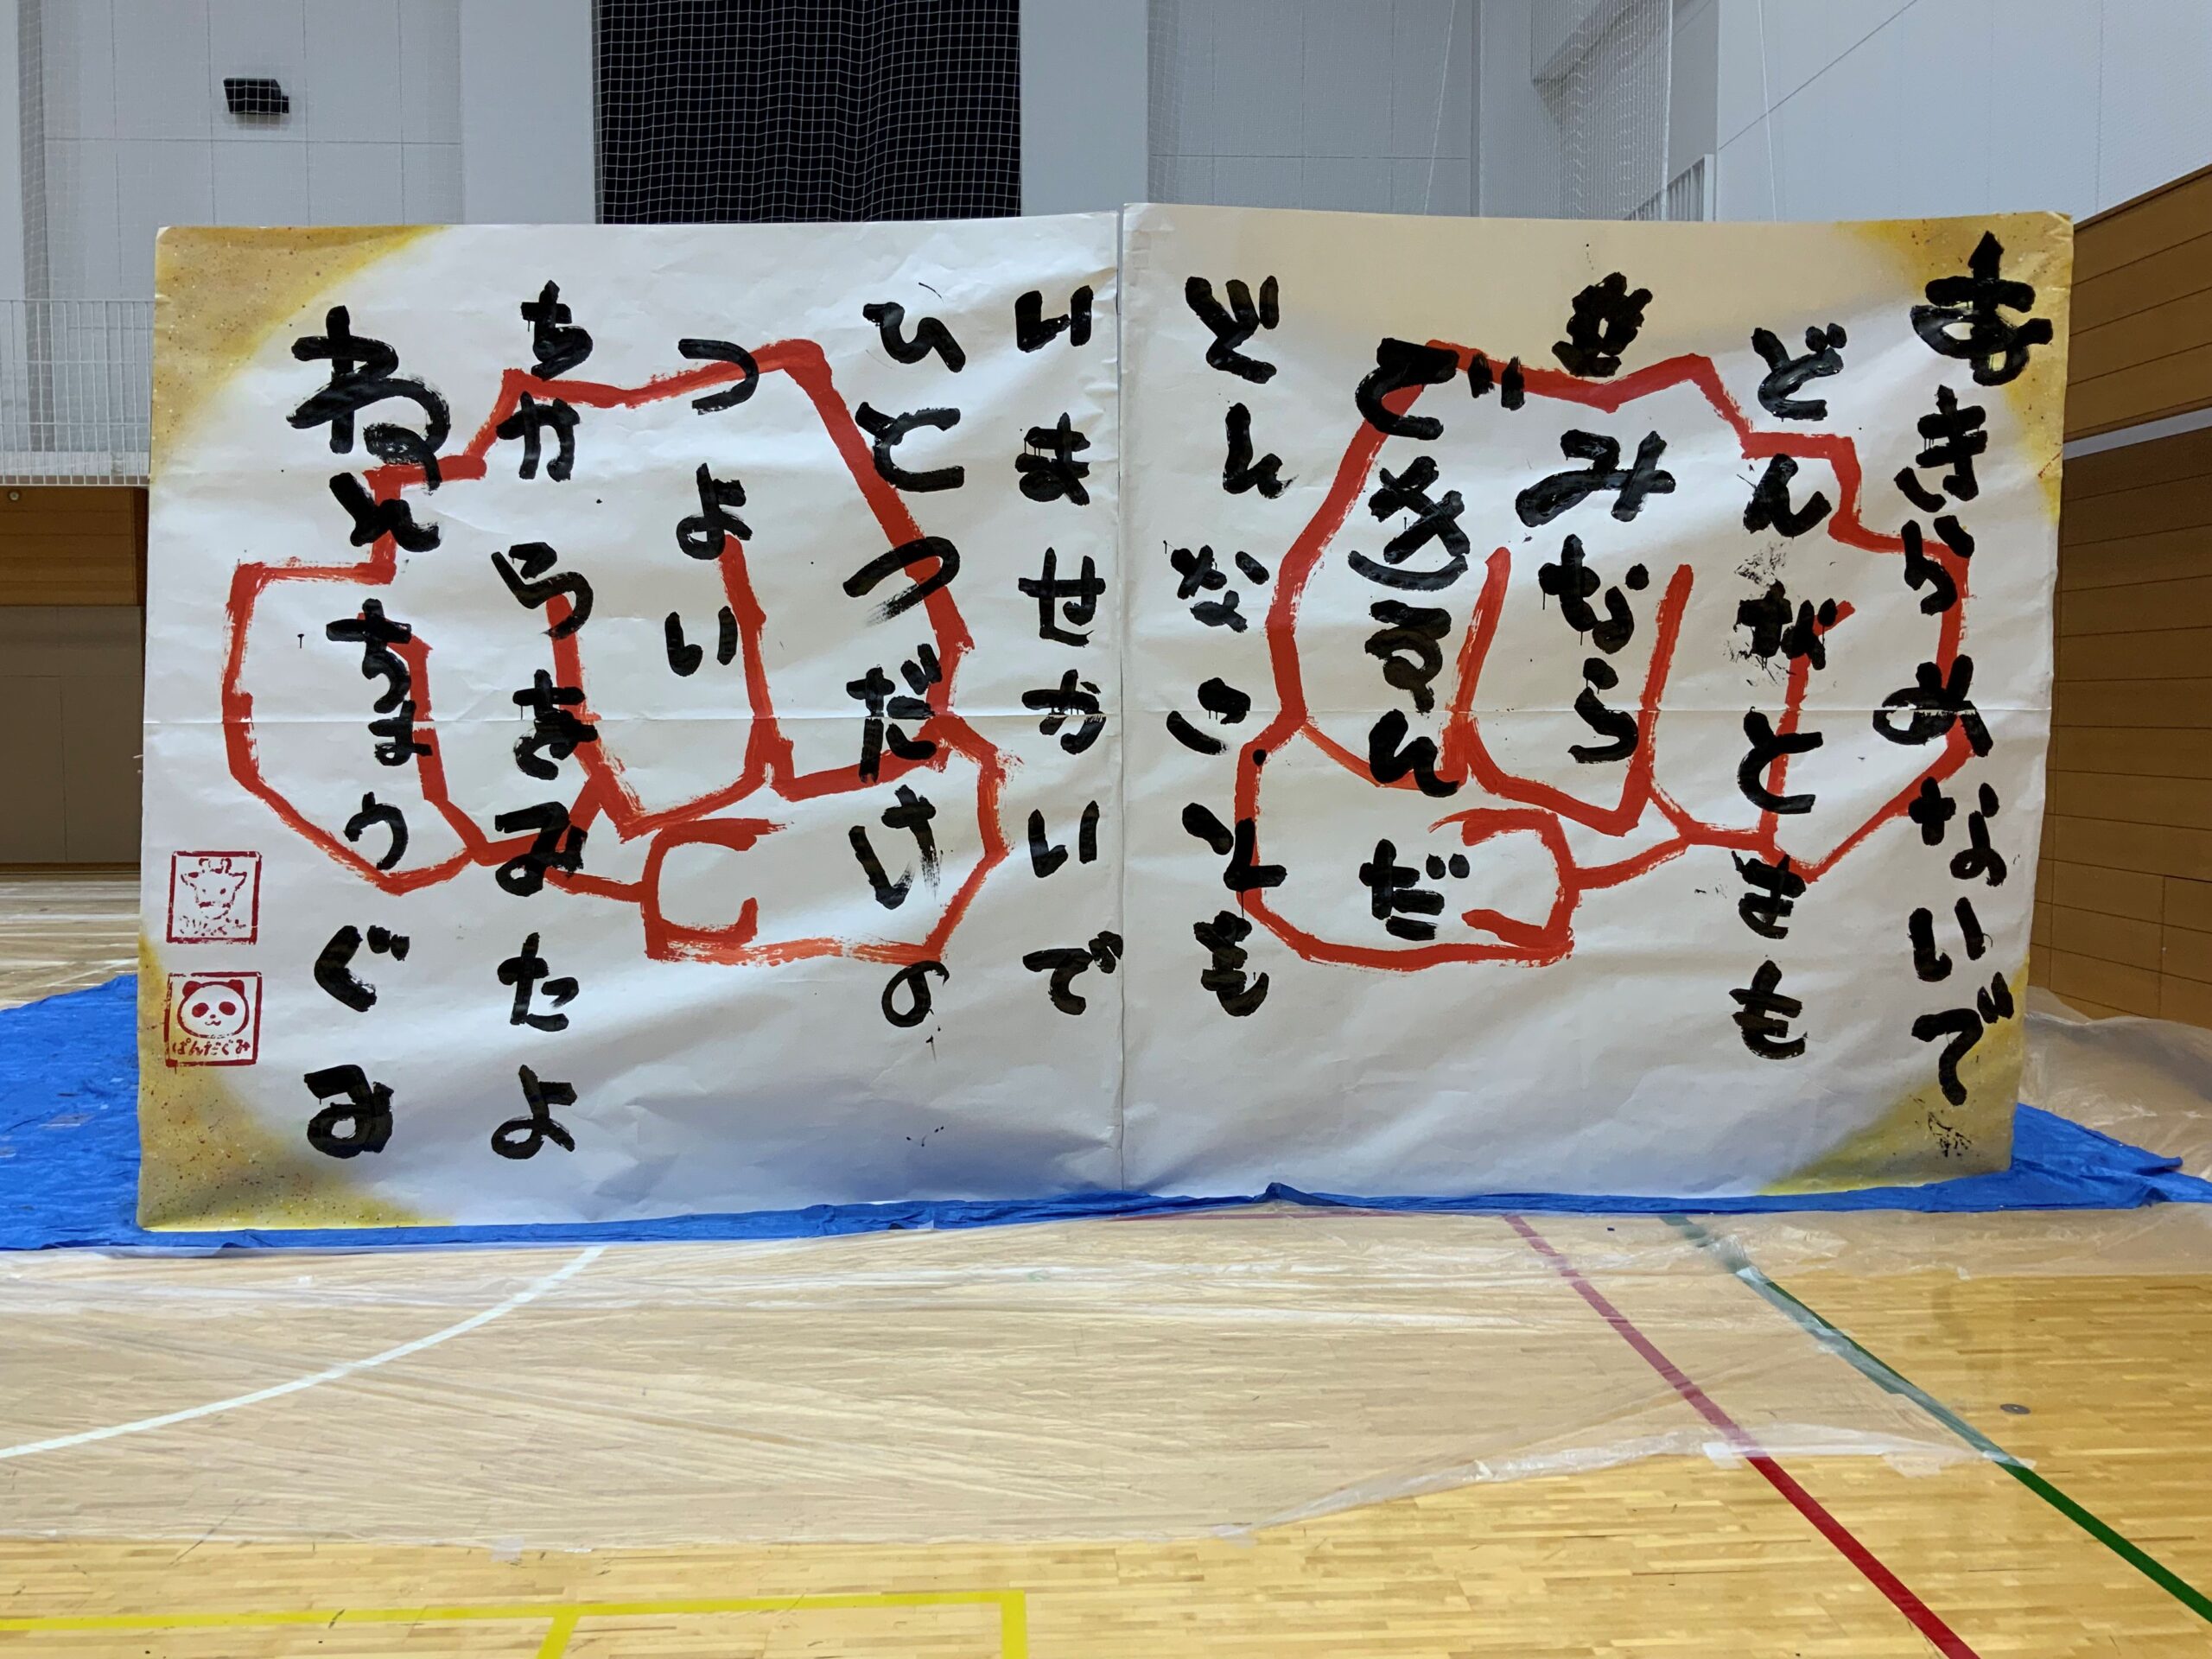 あきらめないで
どんなときも
きみなら
できるんだ
どんなことも
いませかいで
ひとつだけの
つよい
ちからをみたよ
ねんちょうぐみ
ぱんだぐみ